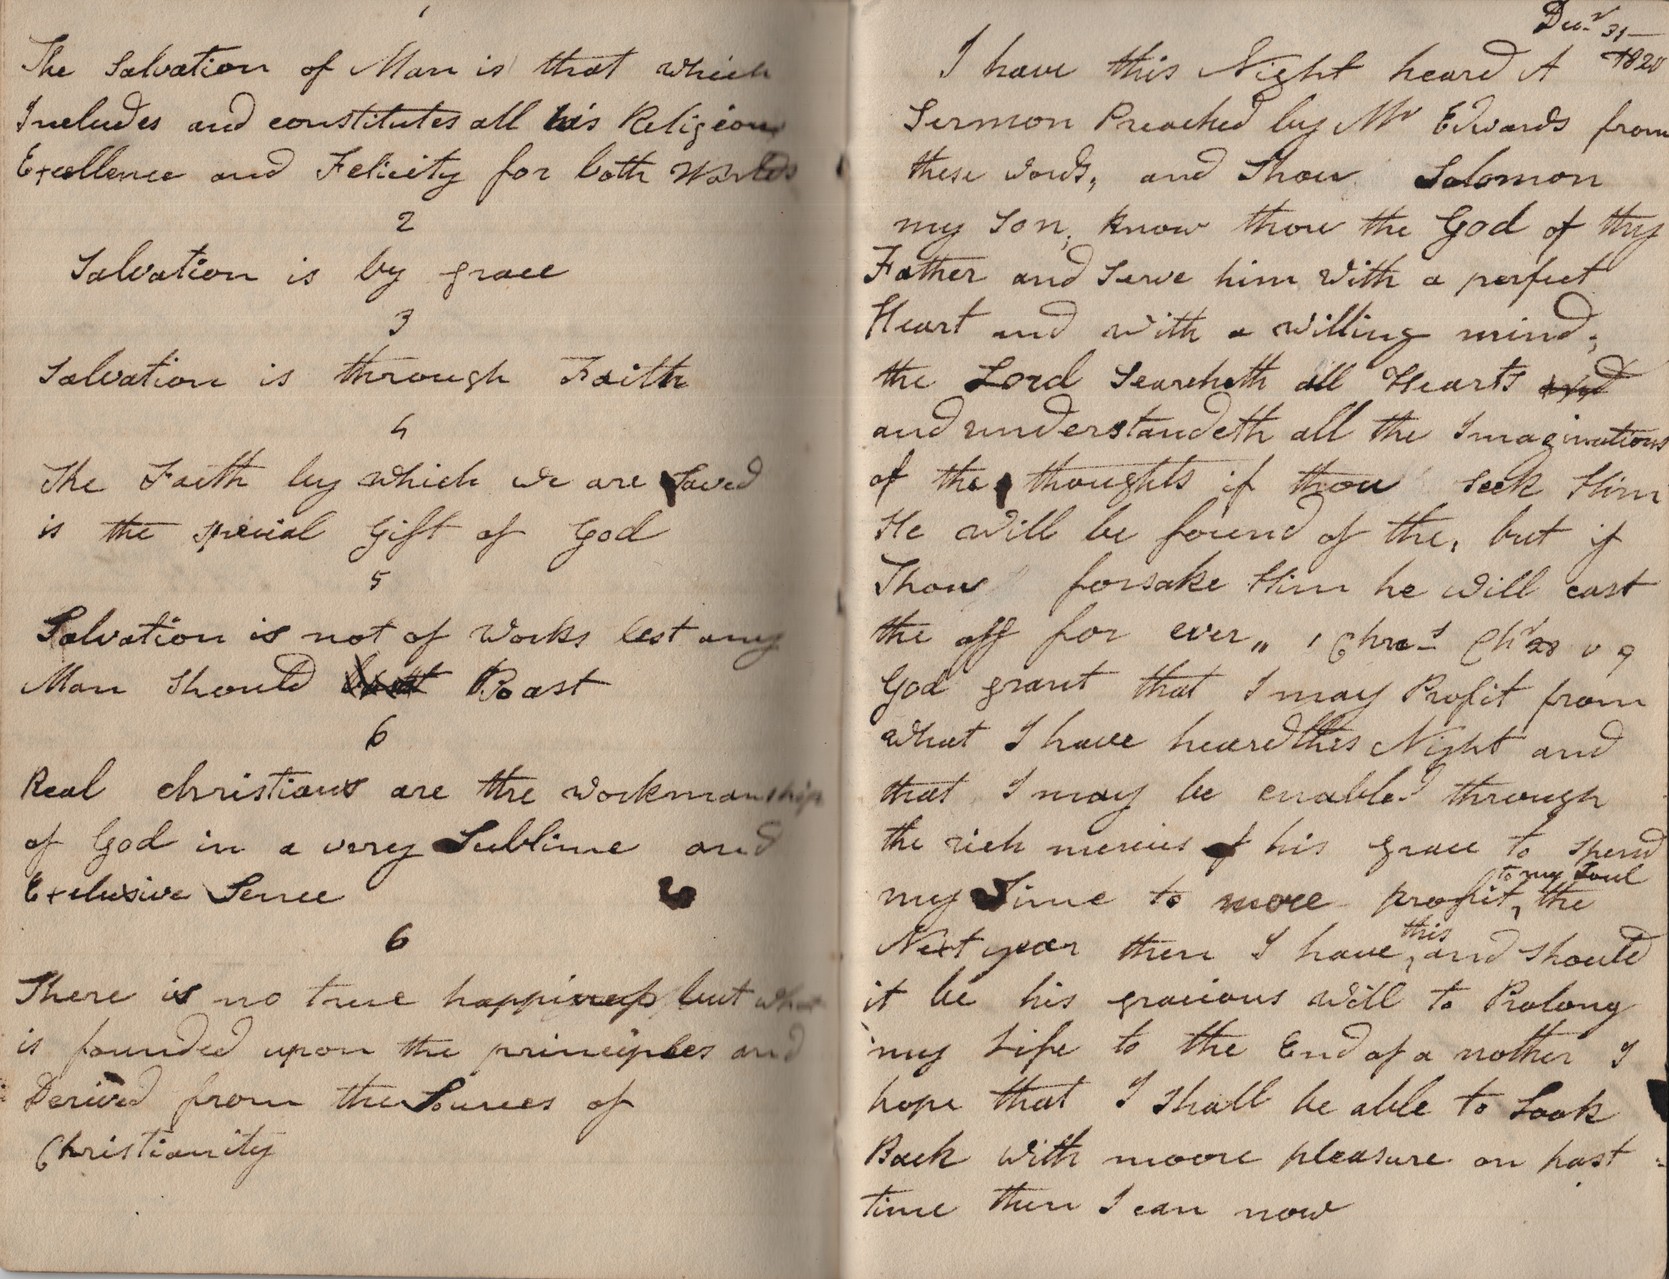 1
The Salvation of Man is that which
Includes and constitutes all his Religious
Excellence and Felicity for both Worlds
2
Salvation is by grace
3
Salvation is through Faith
4
The Faith by which we are Saved
is the special Gift of God
5
Salvation is not of works lest any
Man should Boast
6
Real christians are the workmanship
of God in a very Sublime and
Exclusive Sence
6
There is no true happiness but what
is founded upon the principles and
Derived from the Sources of
Christianity
Decr 31
1820
I have this Night heard A
Sermon Preached by Mr Edwards from
these words, and Thou Solomon
my Son, know thou the God of thy
Father and Serve him with a perfect
Heart and with a willing mind,
the Lord Searcheth all Hearts and
and understandeth all the Imaginations
of the thoughts if thou seek Him
He will be found of the, but if
Thou forsake Him he will cast
the off for ever,, 1 Chrs Chr 28 v 9
God grant that I may Profit from
what I have heard this Night and
that I may be enabled through
the rich mercies of his grace to spend
to my Soul
my Time to more profit, the
this
Next year then I have, and should
it be his gracious will to Prolong
my Life to the End of a nother I
hope that I shall be able to Look
Back with moore pleasure on past
time then I can now